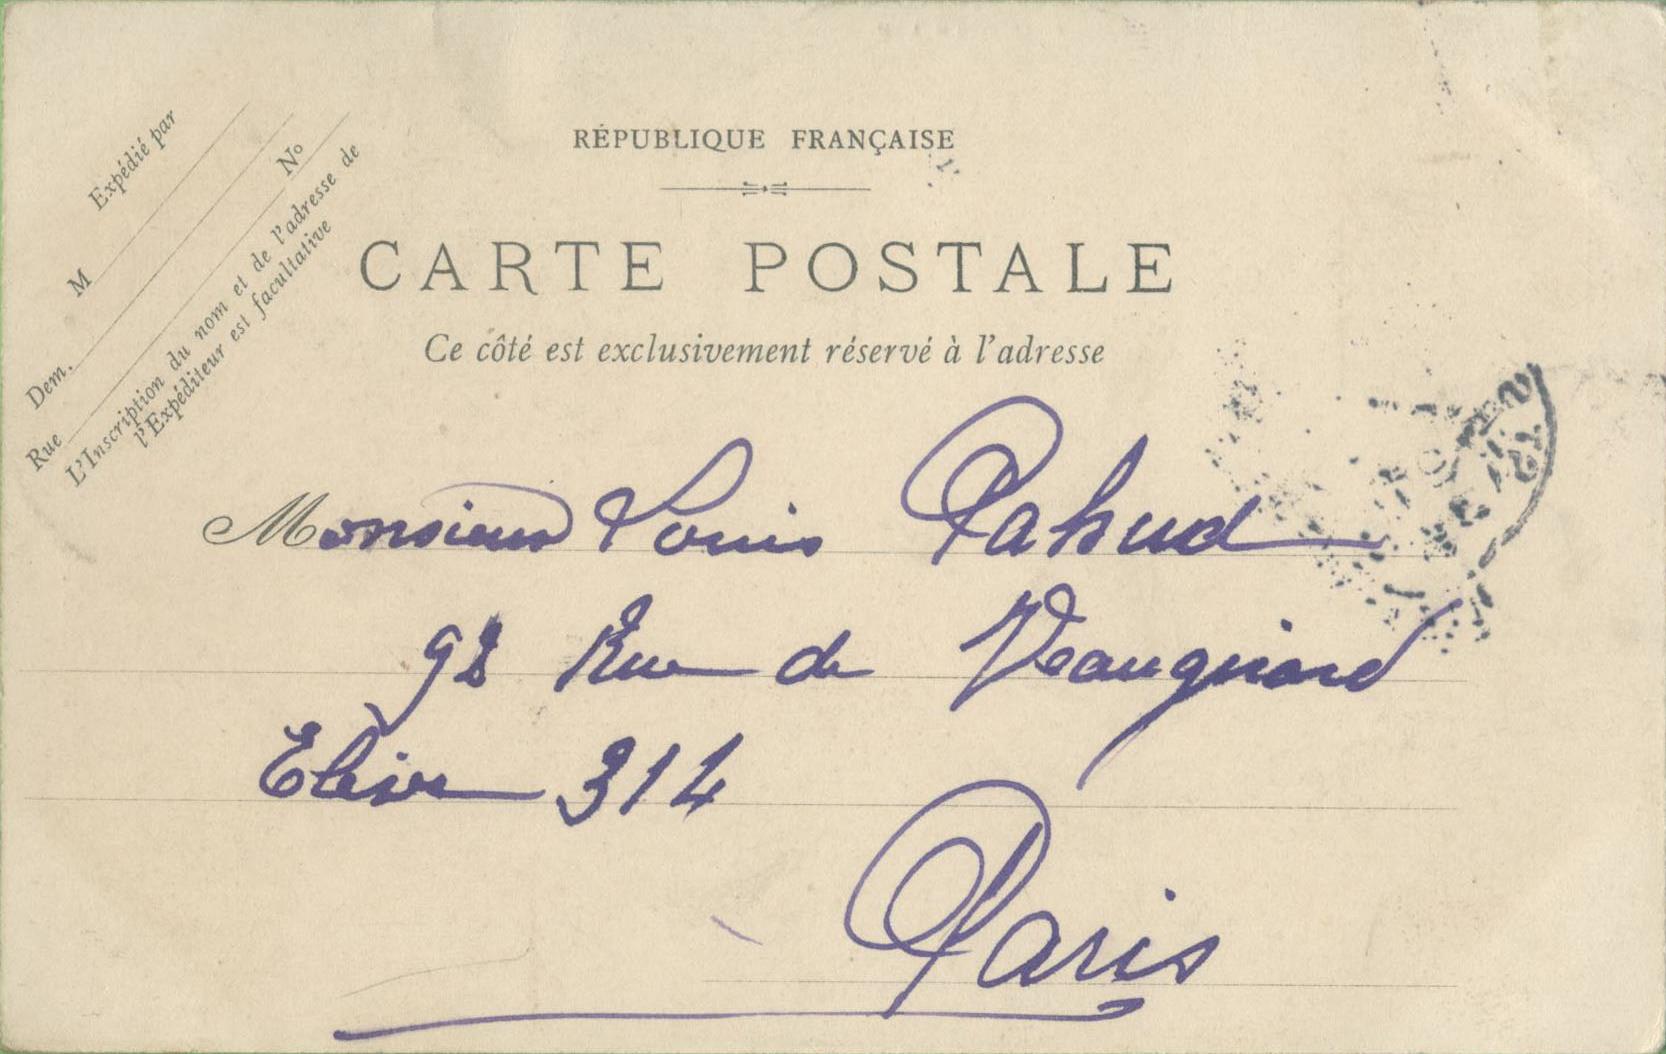 RÉPUBLIQUE FRANÇAISE
CARTE POSTALE
Ce côté est exclusivement réservé à l'adresse
Expédié par
M
Dem.
Rue
No
L'Inscription du nom et de l'adresse de
l'Expéditeur est facultative
Monsieur Louis Pahud
92 Rue de Vaugirard
Elève 314
Paris